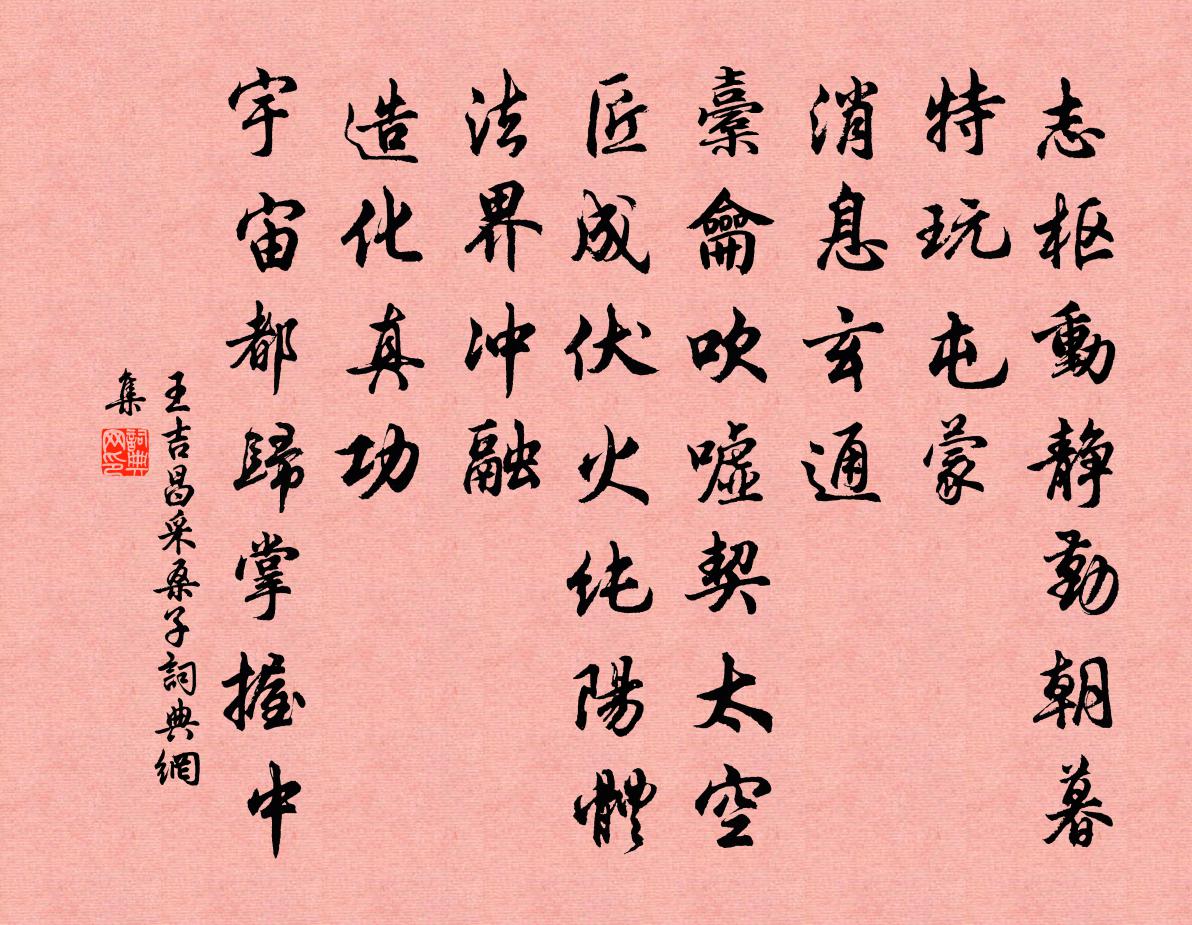 志枢動静勤朝暮
特玩屯蒙
消息玄通
橐龠吹嘘契太空
匠成伏火纯陽體
法界冲融
造化真功
宇宙都歸掌握中
王吉昌采桑子詞典網
集
詞典网印